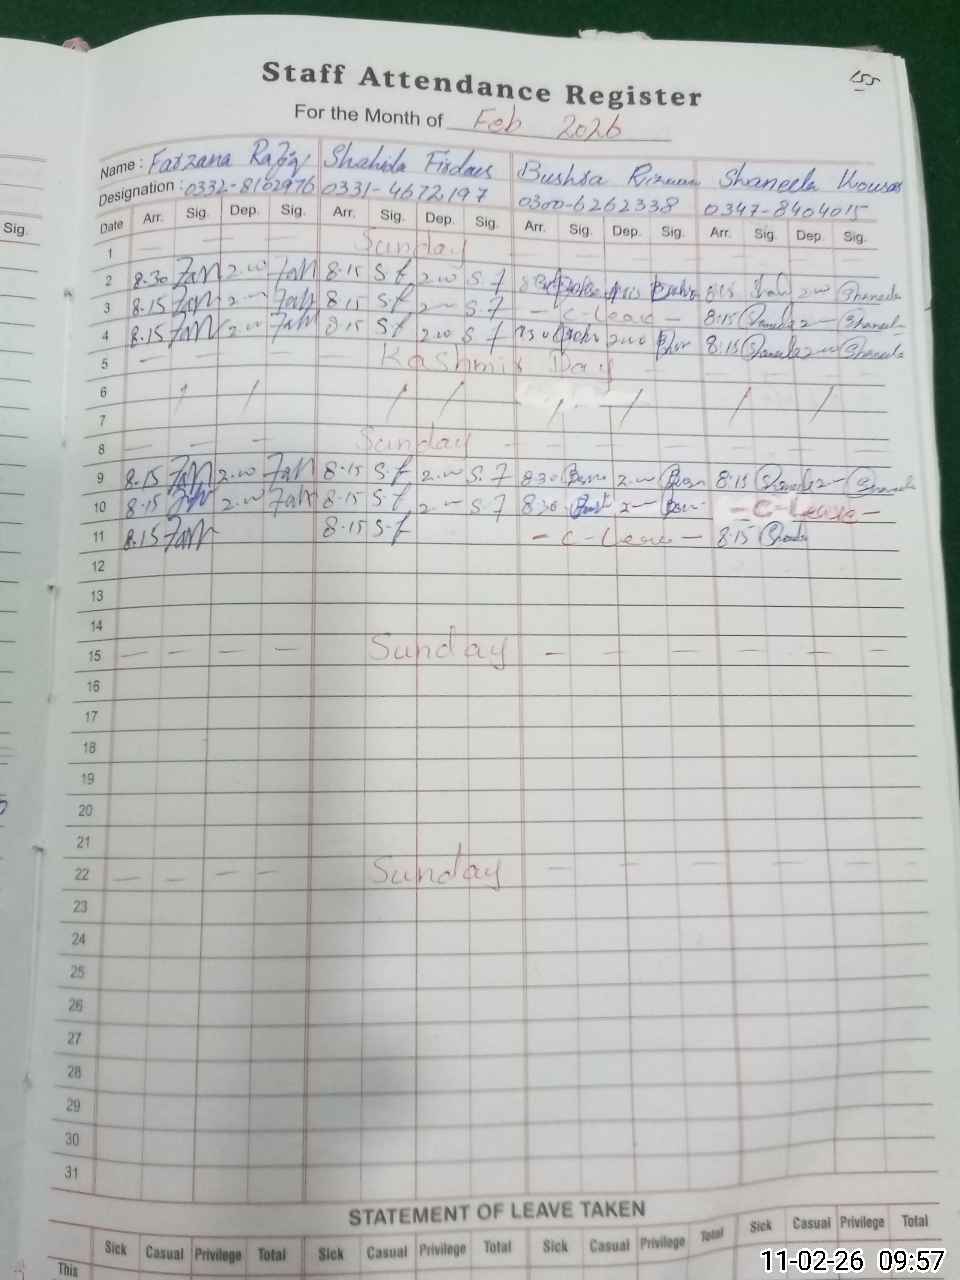 155
Staff Attendance Register
For the Month of Feb 2026
Name : Farzana Rafiq Shahida Firdous Bushra Rizwan Shaneela Kousar
Designation : 0332-8102976 0331-4672197 0300-6262338 0347-8404015
Sig.
Date Arr. Sig. Dep. Sig. Arr. Sig. Dep. Sig. Arr. Sig. Dep. Sig. Arr. Sig. Dep. Sig.
1 — — — — Sunday — — — —
2 8.30 2.00 8.15 S.f 2.00 S.f 8.15 2.00 Shaneela
3 8.15 2— 8.15 S.f 2— S.f — C-Leave — 8.15 2—
4 8.15 2.00 8.15 S.f 2.00 S.f 2.00 8.15 2.00
5 — — Kashmir Day
6 / / / / / / / /
7
8 — — — Sunday — — — —
9 8.15 2.00 8.15 S.f 2.00 S.f 8.30 2.00 8.15 2—
10 8.15 2.00 8.15 S.f 2— S.f 8.30 2— — C-Leave —
11 8.15 8.15 S.f — C-Leave — 8.15
12
13
14
15 — — — — Sunday — — — — —
16
17
18
19
20
21
22 — — — — Sunday — — — — — —
23
24
25
26
27
28
29
30
31
STATEMENT OF LEAVE TAKEN
Sick Casual Privilege Total Sick Casual Privilege Total Sick Casual Privilege Total Sick Casual Privilege Total
This
11-02-26 09:57